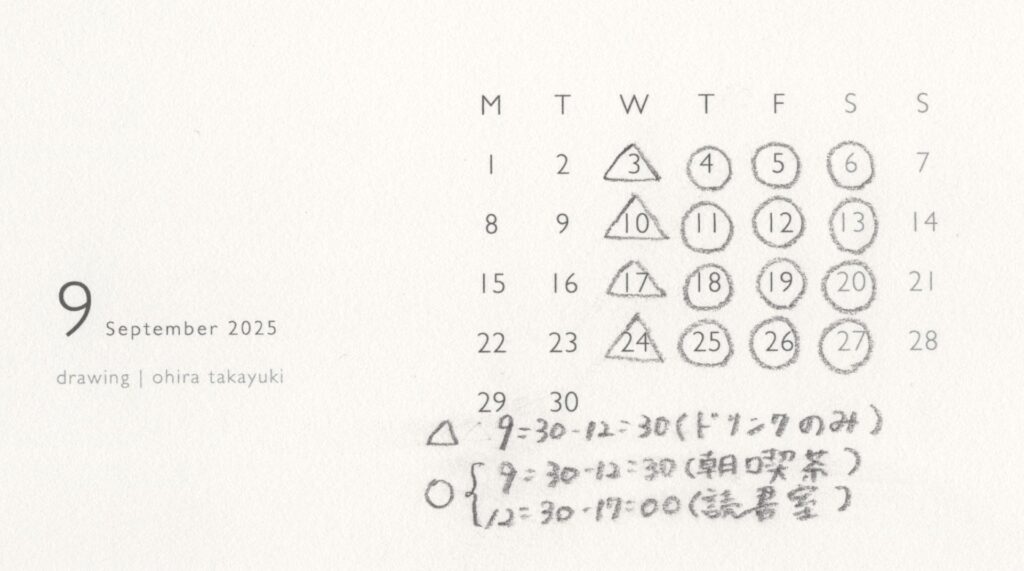 M T W T F S S
1 2 3 4 5 6 7
8 9 10 11 12 13 14
15 16 17 18 19 20 21
22 23 24 25 26 27 28
29 30
9 September 2025
drawing | ohira takayuki
△ 9:30-12:30(ドリンクのみ)
○ { 9:30-12:30(朝喫茶)
12:30-17:00(読書室)